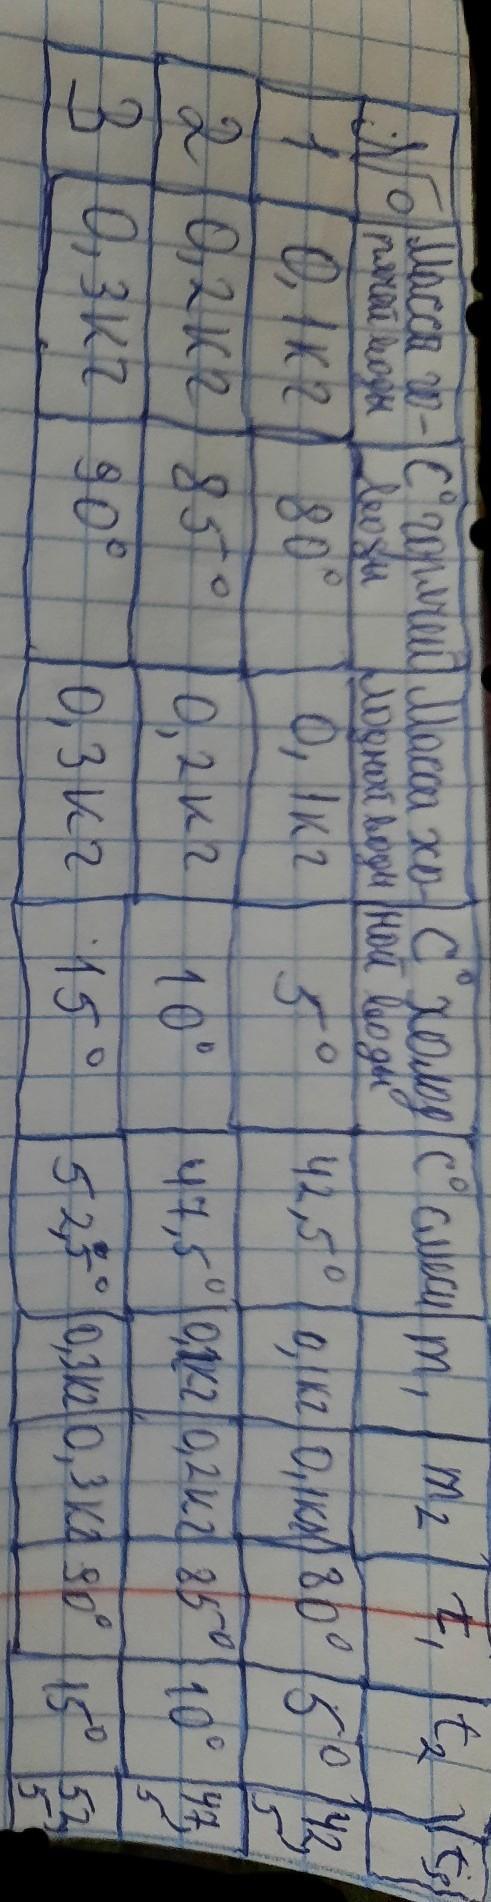 № Масса го- С° горячей Масса хо- С° холод С° смеси m₁ m₂ t₁ t₂ t
рячей воды воды лодной воды ной воды
1 0,1кг 80° 0,1кг 5° 42,5° 0,1кг 0,1кг 80° 5° 42,
5
2 0,2кг 85° 0,2кг 10° 47,5° 0,2кг 0,2кг 85° 10° 47,
5
3 0,3кг 90° 0,3кг 15° 52,5° 0,3кг 0,3кг 90° 15° 52,
5